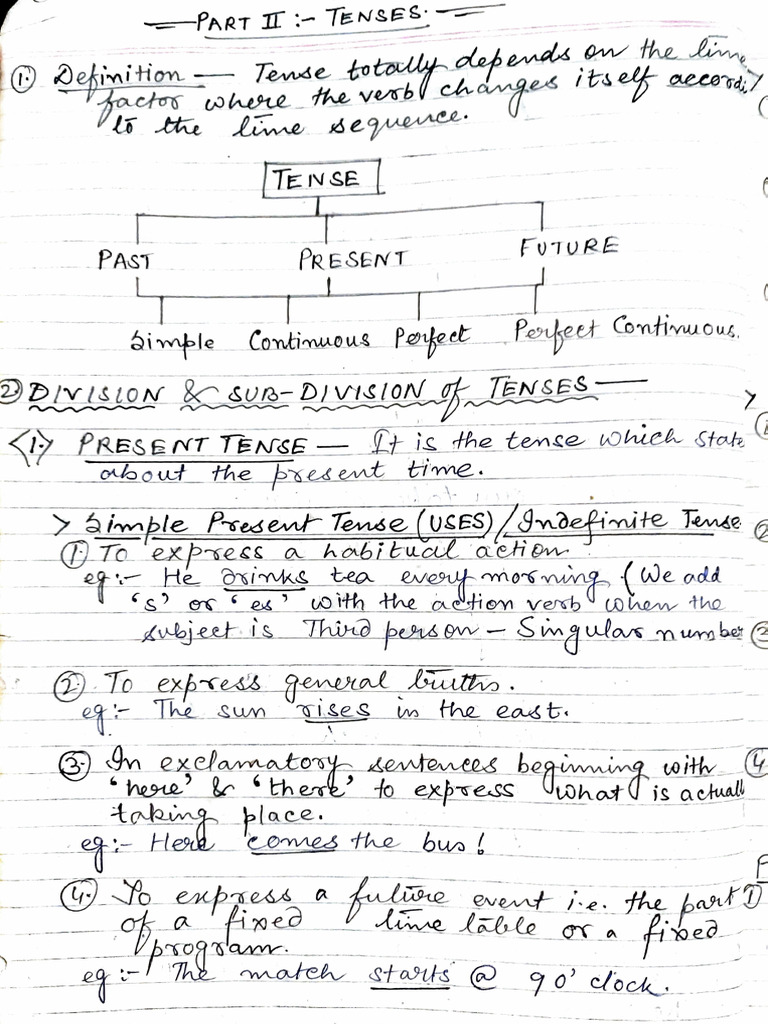 PART II :- TENSES.
1. Definition — Tense totally depends on the time
factor where the verb changes itself accordi
to the time sequence.
TENSE
PAST PRESENT FUTURE
Simple Continuous Perfect Perfect Continuous.
2 DIVISION & SUB-DIVISION of TENSES —
<1.> PRESENT TENSE — It is the tense which state
about the present time.
> Simple Present Tense (USES) / Indefinite Tense
1. To express a habitual action.
eg:- He drinks tea every morning (We add
's' or 'es' with the action verb when the
subject is Third person - Singular number
2. To express general truths.
eg:- The sun rises in the east.
3. In exclamatory sentences beginning with
'here' & 'there' to express what is actuall
taking place.
eg:- Here comes the bus!
4. To express a future event i.e. the part
of a fixed time table or a fixed
program.
eg:- The match starts @ 9 o'clock.